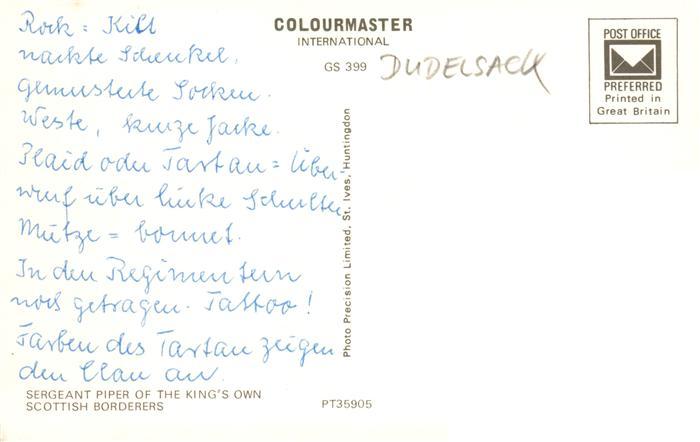 Rock = Kilt
nackte Schenkel.
gemusterte Socken.
Weste, kurze Jacke.
Plaid oder Tartan = Über-
wurf über linke Schulter
Mütze = bonnet.
In den Regimentern
noch getragen. Tattoo!
Farben des Tartan zeigen
den Clan an.
SERGEANT PIPER OF THE KING'S OWN
SCOTTISH BORDERERS
COLOURMASTER
INTERNATIONAL
GS 399
DUDELSACK
Photo Precision Limited, St. Ives, Huntingdon
PT35905
POST OFFICE
PREFERRED
Printed in
Great Britain